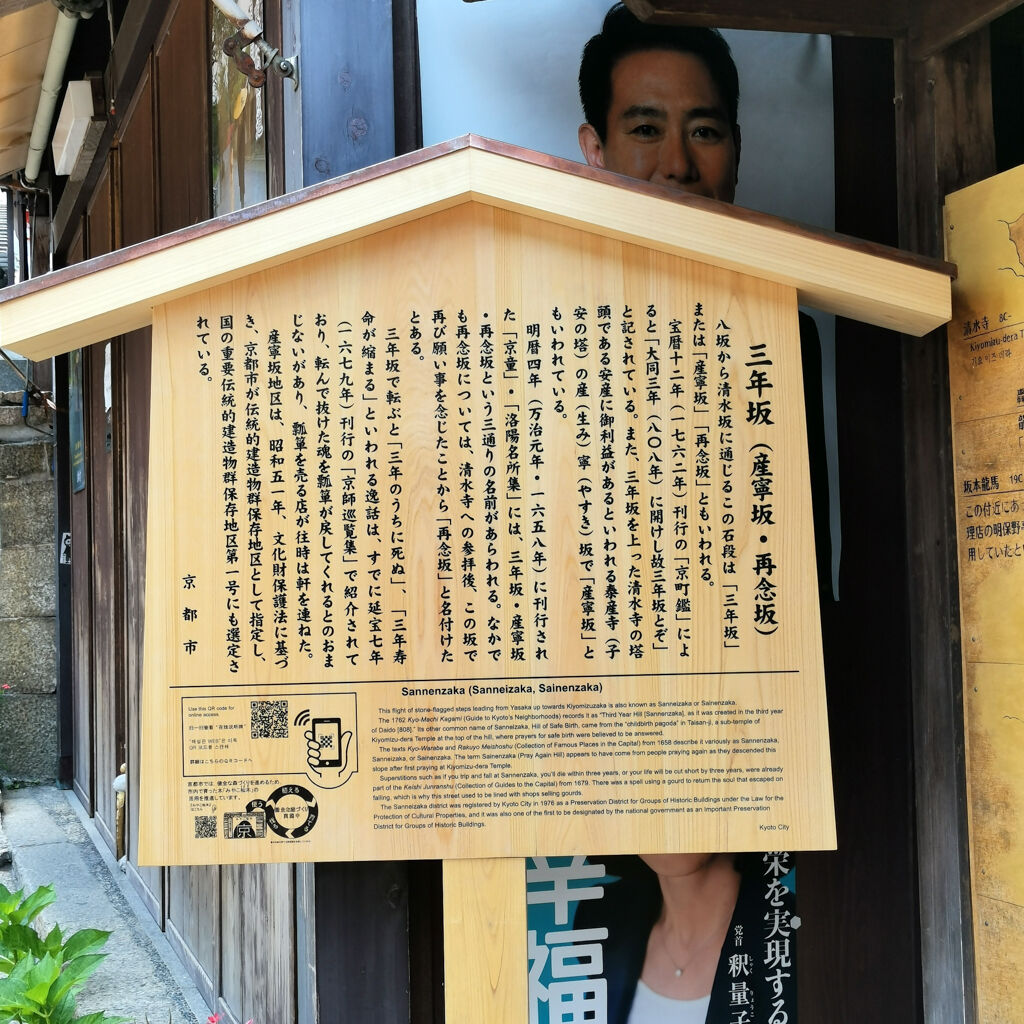 三年坂（産寧坂・再念坂）
八坂から清水坂に通じるこの石段は「三年坂」
または「産寧坂」「再念坂」ともいわれる。
宝暦十二年（一七六二年）刊行の「京町鑑」によ
ると「大同三年（八〇八年）に開けし故三年坂とぞ」
と記されている。また、三年坂を上った清水寺の塔
頭である安産に御利益があるといわれる泰産寺（子
安の塔）の産（生み）寧（やすき）坂で「産寧坂」と
もいわれている。
明暦四年（万治元年・一六五八年）に刊行され
た「京童」・「洛陽名所集」には、三年坂・産寧坂
・再念坂という三通りの名前があらわれる。なかで
も再念坂については、清水寺への参拝後、この坂で
再び願い事を念じたことから「再念坂」と名付けた
とある。
三年坂で転ぶと「三年のうちに死ぬ」、「三年寿
命が縮まる」といわれる逸話は、すでに延宝七年
（一六七九年）刊行の「京師巡覧集」で紹介されて
おり、転んで抜けた魂を瓢箪が戻してくれるとのおま
じないがあり、瓢箪を売る店が往時は軒を連ねた。
産寧坂地区は、昭和五一年、文化財保護法に基づ
き、京都市が伝統的建造物群保存地区として指定し、
国の重要伝統的建造物群保存地区第一号にも選定さ
れている。
京都市
Sannenzaka (Sanneizaka, Sainenzaka)
This flight of stone-flagged steps leading from Yasaka up towards Kiyomizuzaka is also known as Sanneizaka or Sainenzaka.
The 1762 Kyo-Machi Kagami (Guide to Kyoto's Neighborhoods) records it as "Third Year Hill [Sannenzaka], as it was created in the third year
of Daido [808]." Its other common name of Sanneizaka, Hill of Safe Birth, came from the "childbirth pagoda" in Taisan-ji, a sub-temple of
Kiyomizu-dera Temple at the top of the hill, where prayers for safe birth were believed to be answered.
The texts Kyo-Warabe and Rakuyo Meishoshu (Collection of Famous Places in the Capital) from 1658 describe it variously as Sannenzaka,
Sanneizaka, or Sainenzaka. The term Sainenzaka (Pray Again Hill) appears to have come from people praying again as they descended this
slope after first praying at Kiyomizu-dera Temple.
Superstitions such as if you trip and fall at Sannenzaka, you'll die within three years, or your life will be cut short by three years, were already
part of the Keishi Junranshu (Collection of Guides to the Capital) from 1679. There was a spell using a gourd to return the soul that escaped on
falling, which is why this street used to be lined with shops selling gourds.
The Sanneizaka district was registered by Kyoto City in 1976 as a Preservation District for Groups of Historic Buildings under the Law for the
Protection of Cultural Properties, and it was also one of the first to be designated by the national government as an Important Preservation
District for Groups of Historic Buildings.
Kyoto City
Use this QR code for
online access.
詳しくはこちらのQRコードへ
京都市では、健全な森づくりを進めるため、
市内で育った木「みやこ杣木」の
活用を推進しています。
使う
植える
京
清水寺
Kiyomizu-dera
坂本龍馬
この付近にあ
理店の明保野
用していたと
幸福
栄を実現する
党首
釈量子
しゃく りょうこ